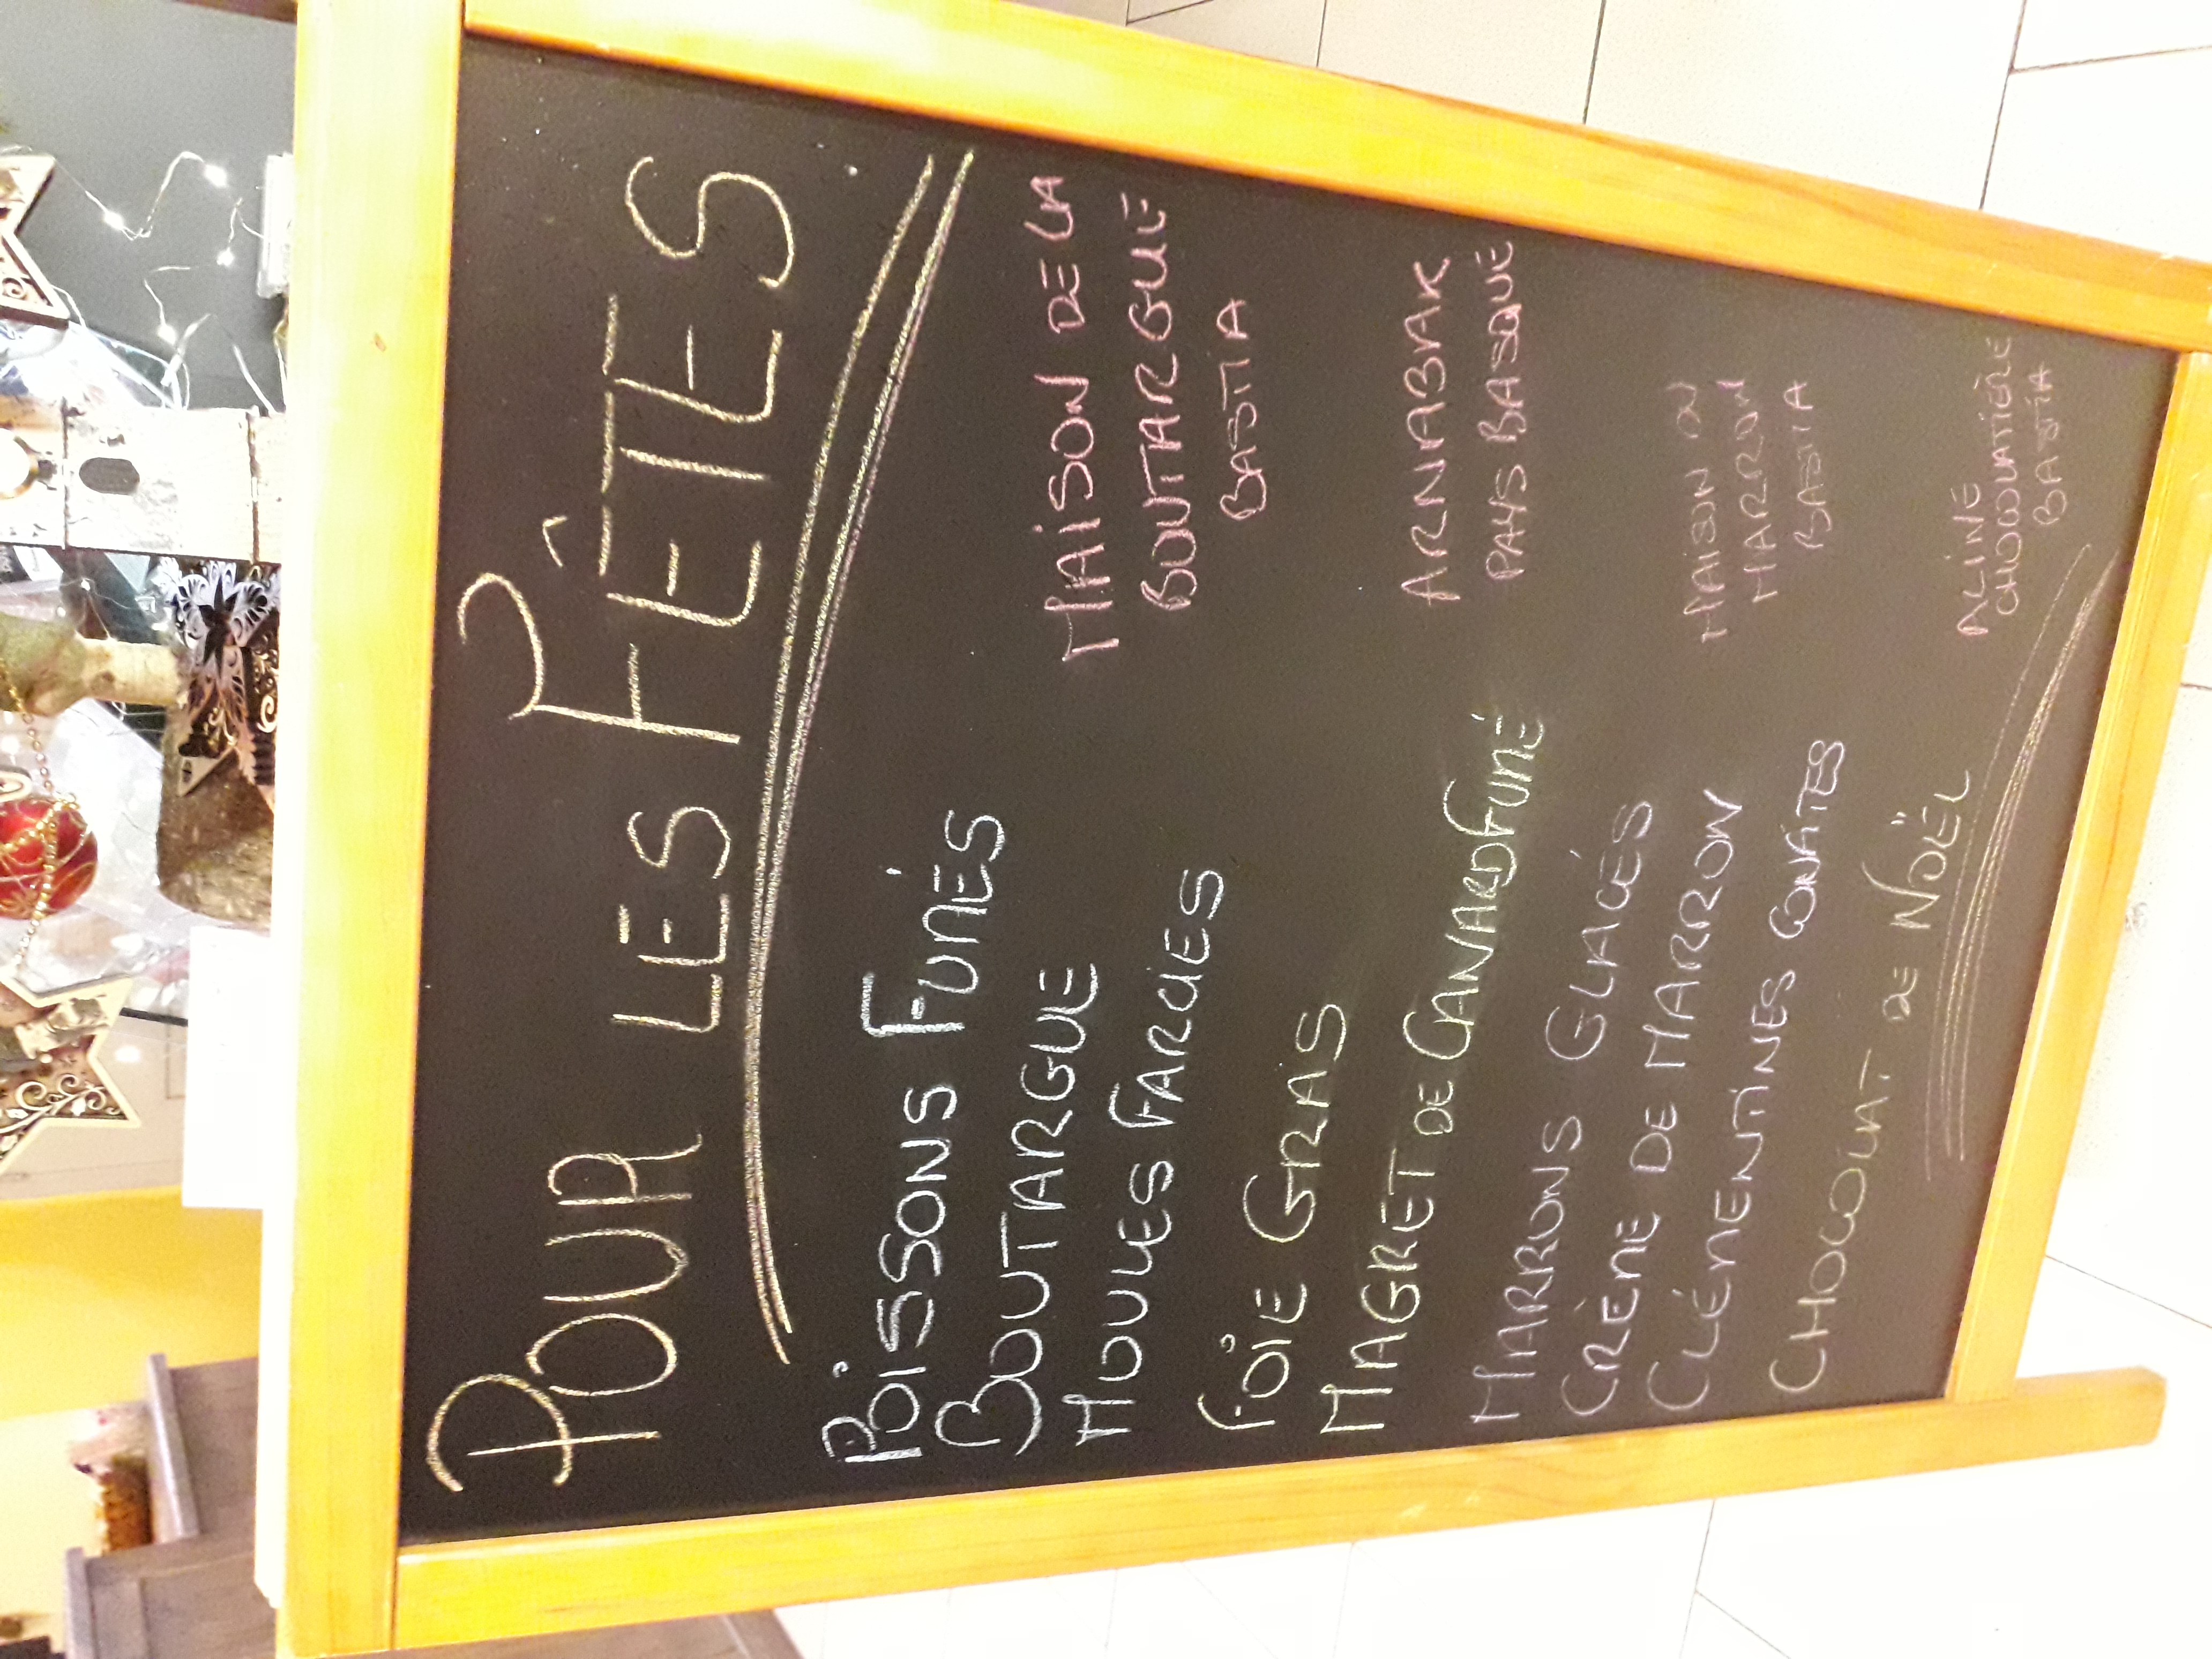 POUR LES FÊTES
POISSONS FUMÉS
BOUTARGUE
MOULES FARCIES
MAISON DE LA
BOUTARGUE
BASTIA
FOIE GRAS
MAGRET DE CANARD FUMÉ
ARNABAK
PAYS BASQUE
MARRONS GLACÉS
CRÈME DE MARRON
CLÉMENTINES CONFITES
MAISON DU
MARRON
BASTIA
CHOCOLAT DE NOËL
ALINE
CHOCOLATIÈRE
BASTIA